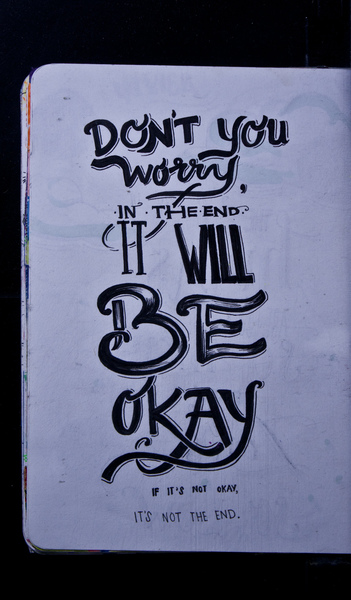 DON'T YOU
worry,
·IN·THE·END·
IT WILL
BE
OKAY
IF IT'S NOT OKAY,
IT'S NOT THE END.